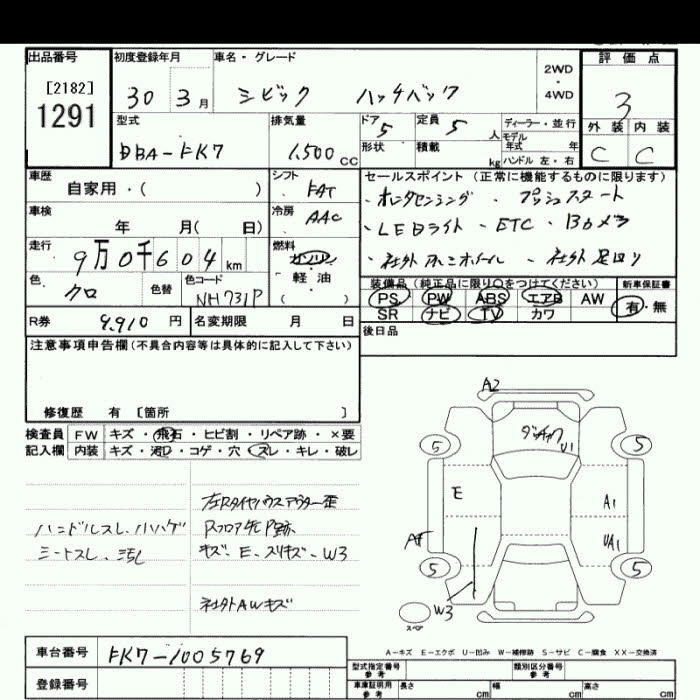 出品番号
[2182]
1291
初度登録年月
30 3月
車名・グレード
シビック ハッチバック
2WD
・
4WD
評価点
3
外装 内装
C C
型式
DBA-FK7
排気量
1,500cc
ドア 5
形状
定員 5人
積載 kg
ディーラー・並行
モデル年式 年
ハンドル 左・右
車歴
自家用・( )
シフト
FAT
車検
年 月( 日)
冷房
AAC
走行
9万0千604km
燃料
ガソリン
・
軽油
( )
色
クロ
色替
色コード
NH731P
R券 9,910円
名変期限 月 日
セールスポイント(正常に機能するものに限ります)
・ホンダセンシング ・プッシュスタート
・LEDライト ・ETC ・Bカメラ
・社外アルミホイール ・社外足回り
装備品(純正品に限り○をつけてください)
新車保証書
PS PW ABS エアB AW
SR ナビ TV カワ
有・無
後日品
注意事項申告欄(不具合内容等は具体的に記入して下さい)
修復歴 有 [箇所 ]
検査員記入欄
FW キズ・飛石・ヒビ割・リペア跡・×要
内装 キズ・汚れ・コゲ・穴・スレ・キレ・破レ
左Rタイヤハウスアウター歪
ハンドルスレ、ハゲ
Rフロア先P跡
シートスレ、汚れ
キズ・E・スリキズ・W3
社外AWキズ
A2
5 5
U1
E
A1
UA1
5 5
W3
スペア
A-キズ E-エクボ U-凹み W-補修跡 S-サビ C-腐食 XX-交換済
車台番号 FK7-1005769
登録番号
型式指定番号 参考
類別区分番号 参考
車庫証明用 参考
長さ cm 幅 cm 高さ cm